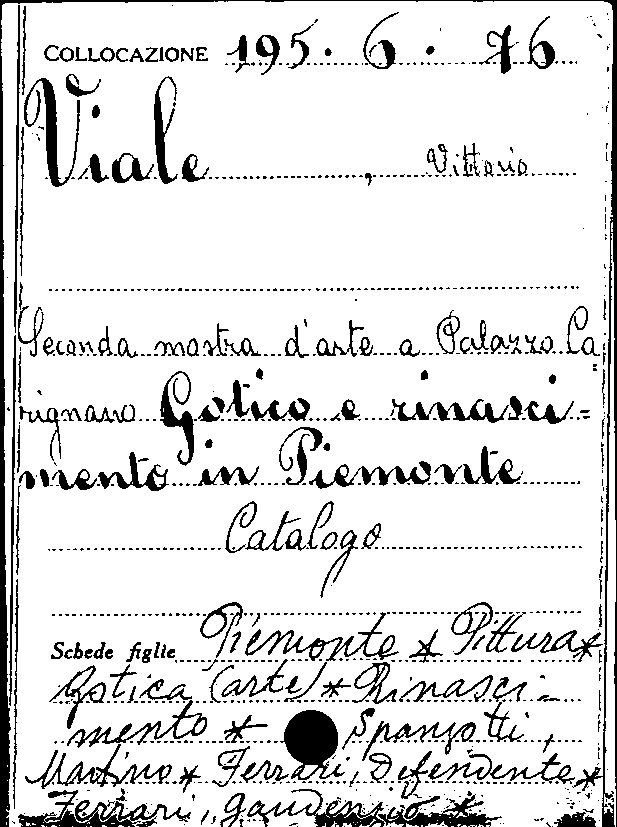 COLLOCAZIONE 195. 6. 76
Viale, Vittorio
Seconda mostra d'arte a Palazzo Ca=
rignano Gotico e rinasci=
mento in Piemonte
Catalogo
Schede figlie Piemonte * Pittura *
Gotica (arte) * Rinasci-
mento * Spanzotti,
Martino * Ferrari, Defendente *
Ferrari, Gaudenzio *